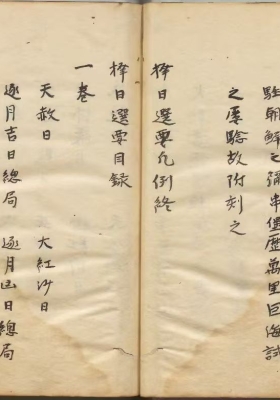 駐朝鮮之𥸤串堡歷萬里巨海試
之屢驗故附刻之
擇日選要凡例終
擇日選要目錄
一卷
天赦日 大紅沙日
逐月吉日總局 逐月凶日總局